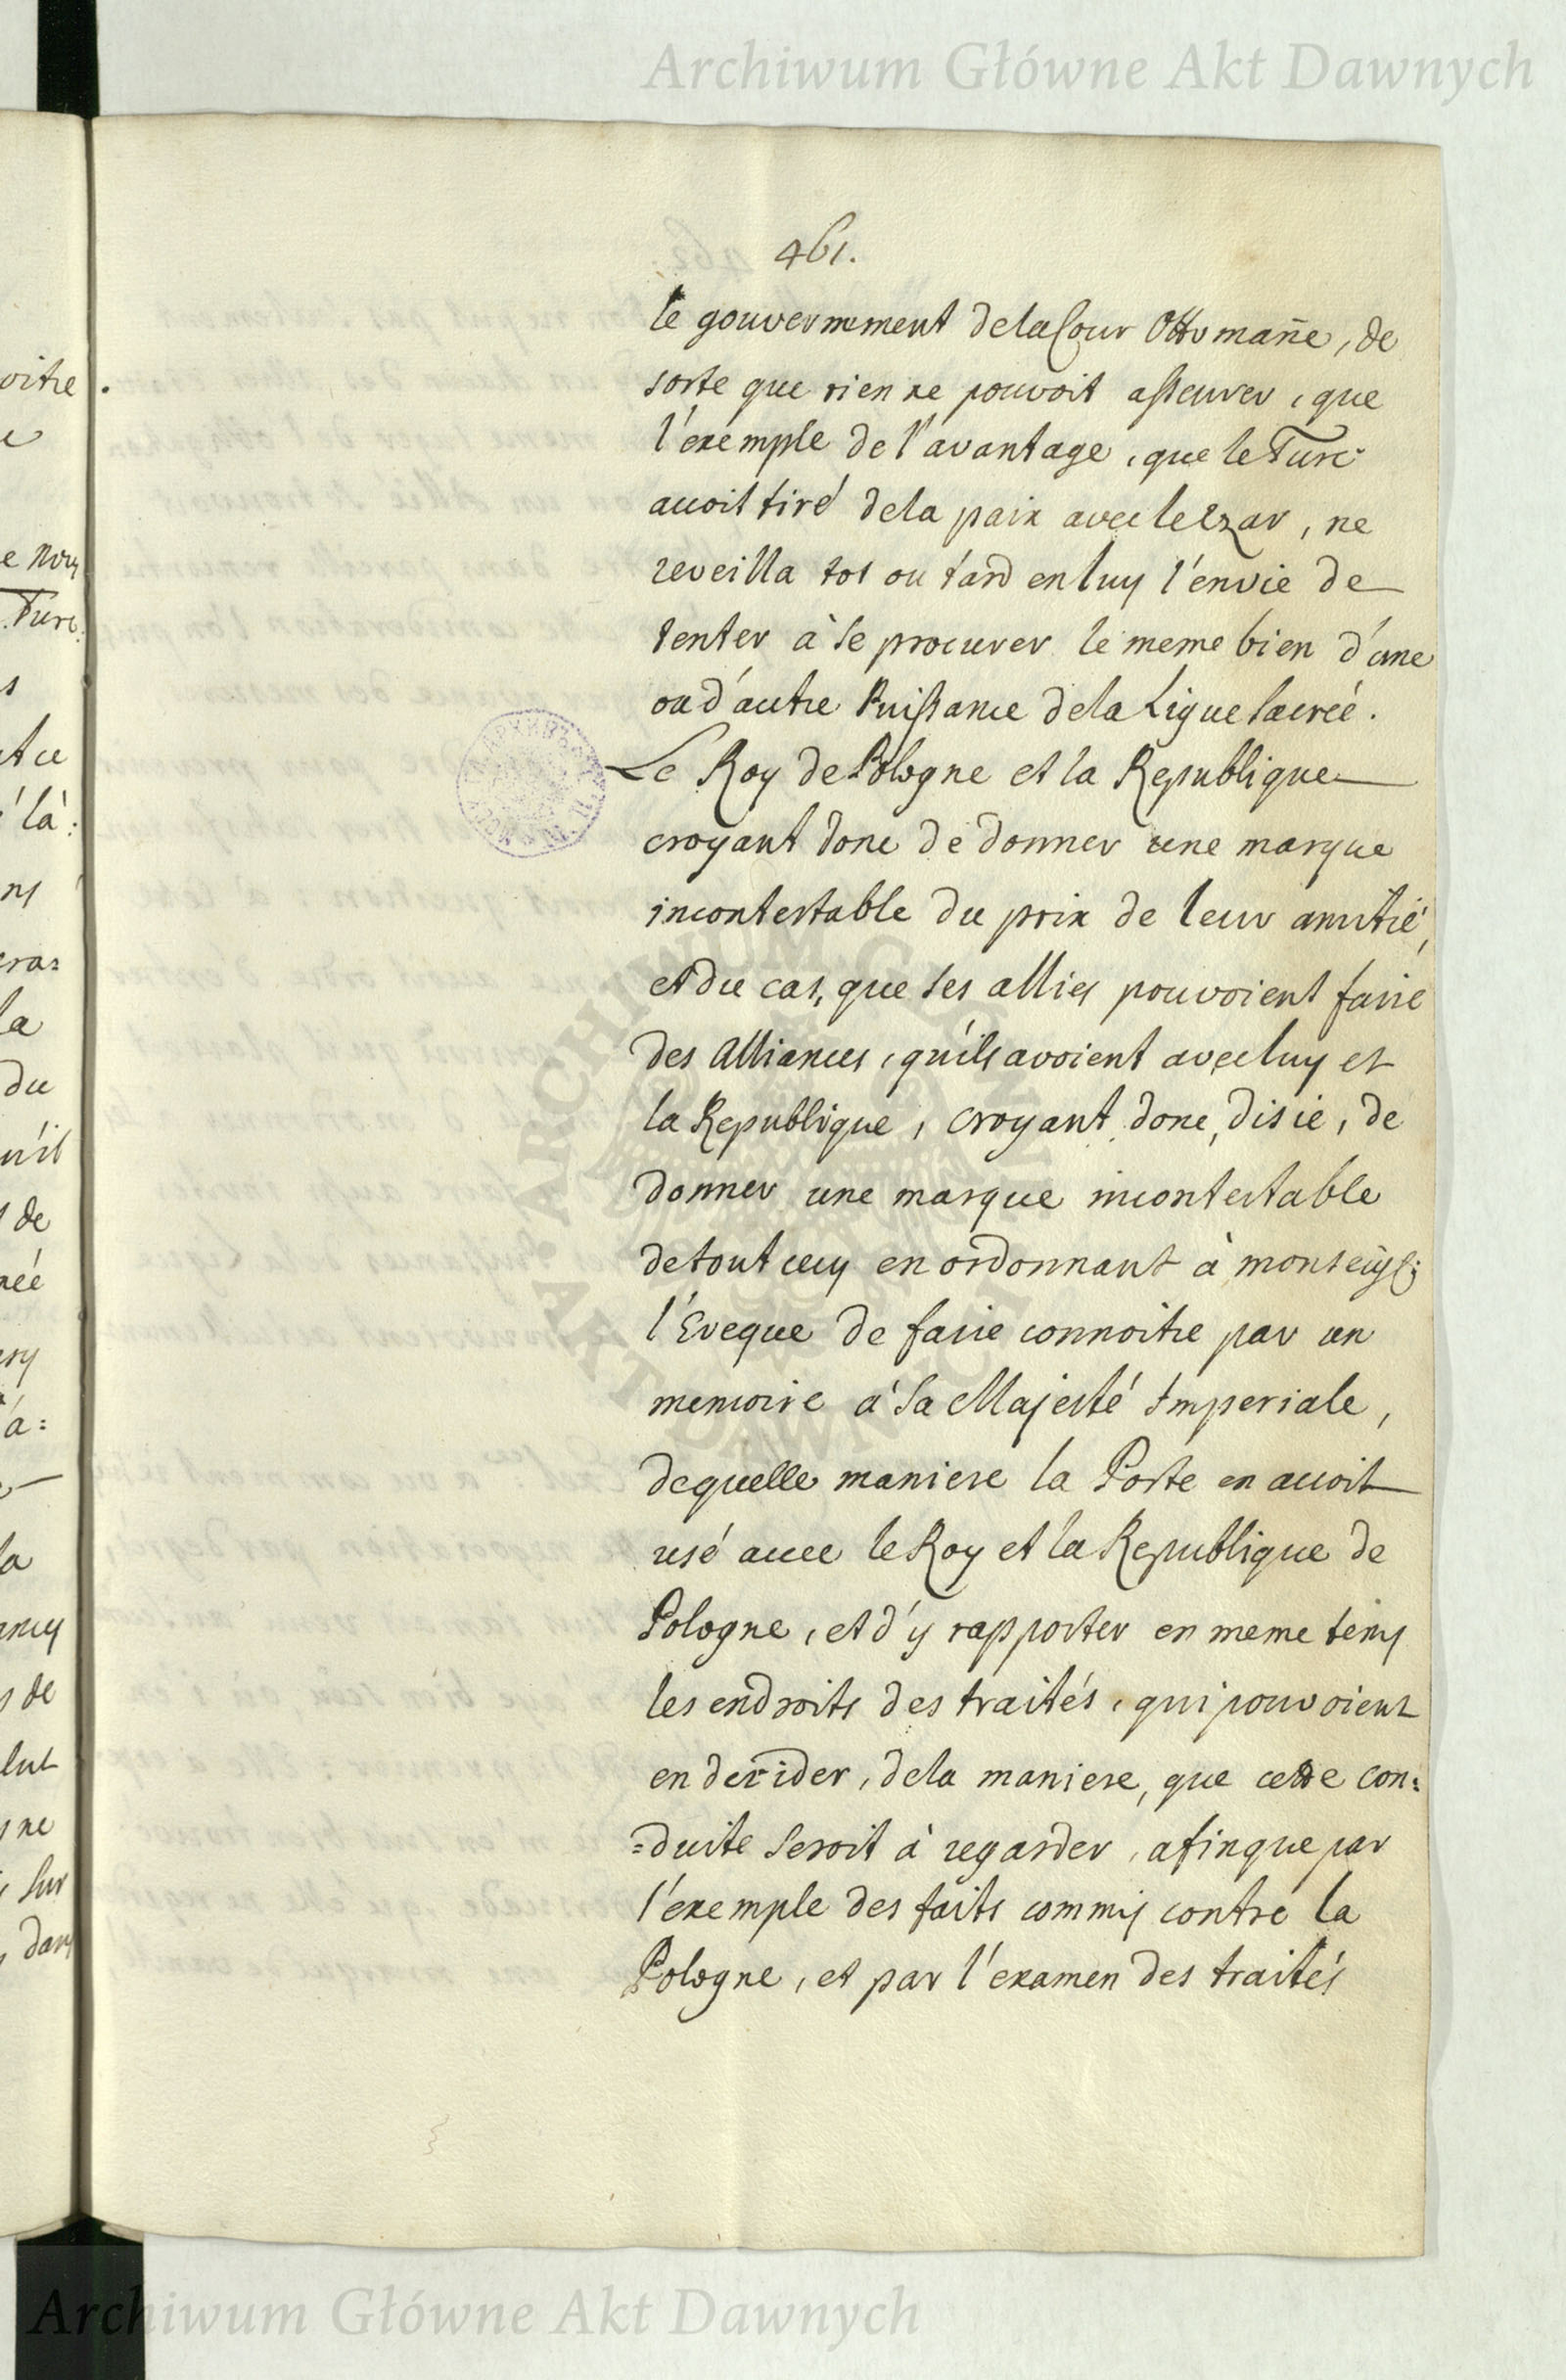 Archiwum Główne Akt Dawnych
461.
le gouvernement de la Cour Ottomañe, de
sorte que rien ne pouvoit asseurer, que
l'exemple de l'avantage, que le Turc
avoit tiré de la paix avec le Czar, ne
reveilla tot ou tard en luy l'envie de
tenter à se procurer le meme bien d'une
ou d'autre Puissance de la Ligue sacreé.
Le Roy de Pologne et la Republique
croyant donc de donner une marque
incontestable du prix de leur amitié,
et du cas, que ses alliés pouvoient faire
des Alliances, qu'ils avoient avec luy et
la Republique, croyant donc, disie, de
donner une marque incontestable
de tout cecy en ordonnant à monseig:
l'Eveque de faire connoitre par un
memoire à Sa Majesté Imperiale,
de quelle maniere la Porte en avoit
usé avec le Roy et la Republique de
Pologne, et d'y rapporter en meme tems
les endroits des traités, qui pouvoient
en decider, de la maniere, que cette con=
=duite seroit à regarder, afin que par
l'exemple des faits commis contre la
Pologne, et par l'examen des traités
Archiwum Główne Akt Dawnych